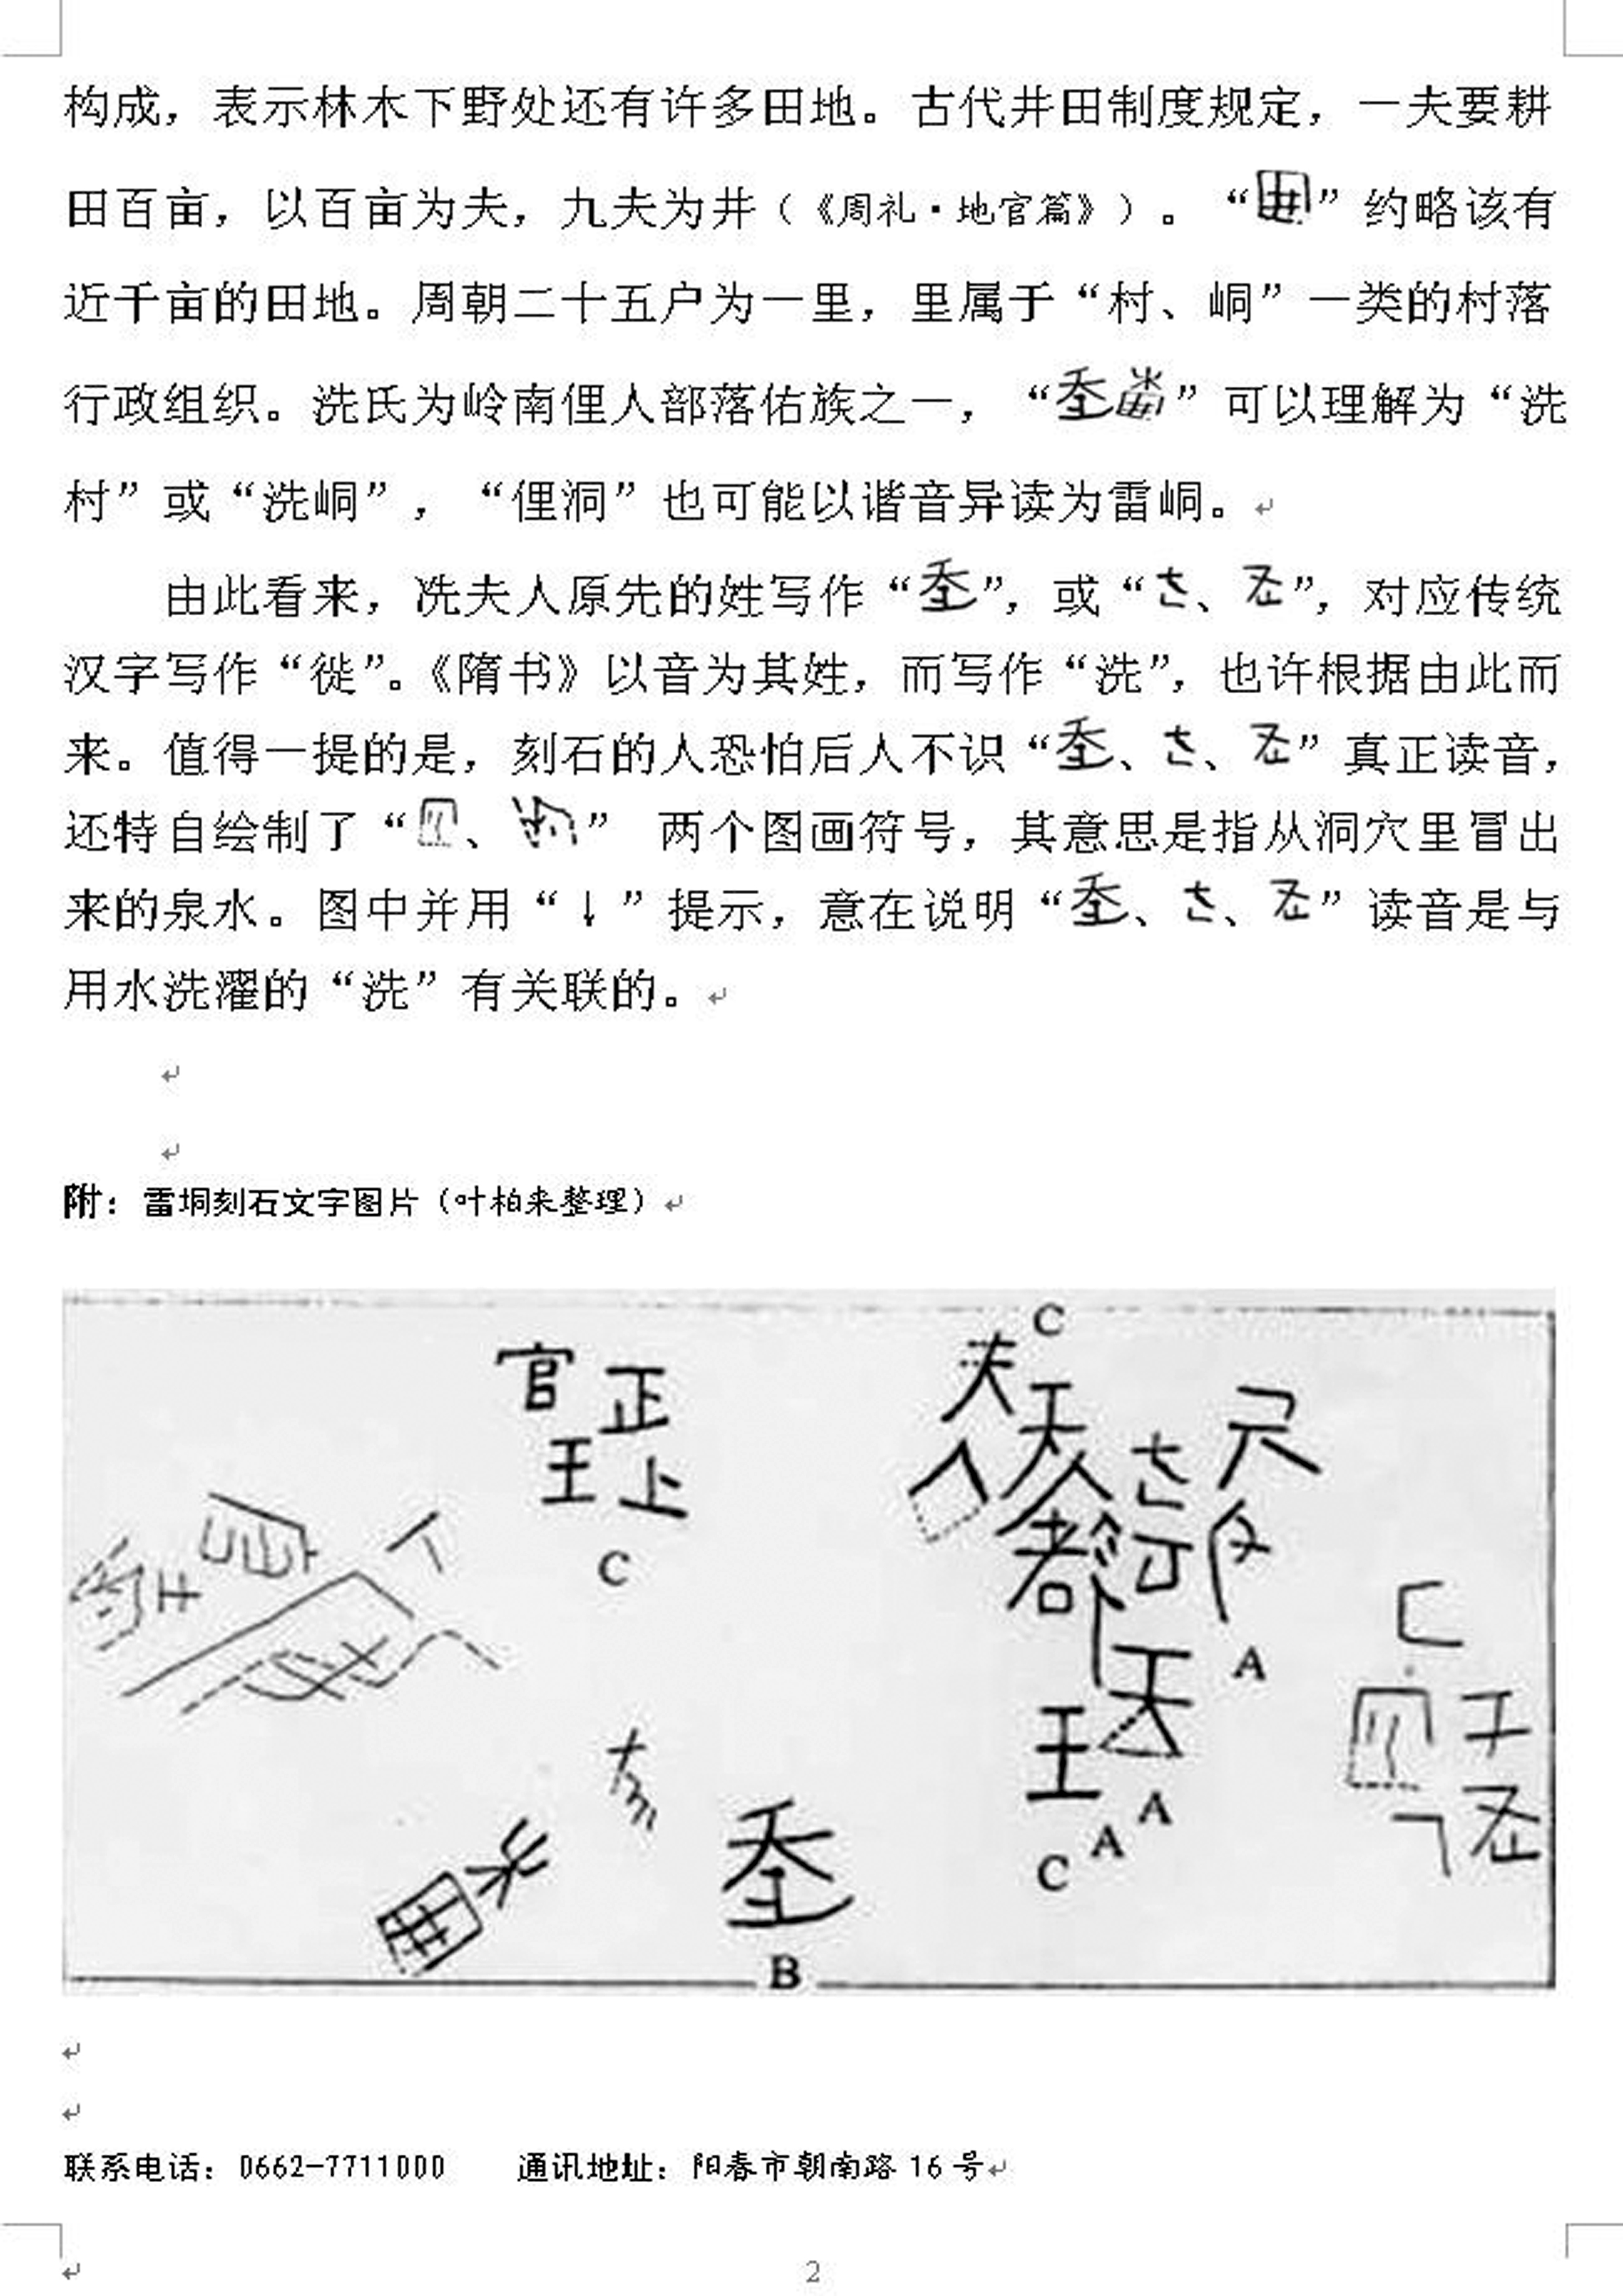 构成，表示林木下野处还有许多田地。古代井田制度规定，一夫要耕
田百亩，以百亩为夫，九夫为井（《周礼·地官篇》）。“”约略该有
近千亩的田地。周朝二十五户为一里，里属于“村、峒”一类的村落
行政组织。冼氏为岭南俚人部落佑族之一，“”可以理解为“冼
村”或“冼峒”，“俚洞”也可能以谐音异读为雷峒。
由此看来，冼夫人原先的姓写作“”，或“、”，对应传统
汉字写作“徙”。《隋书》以音为其姓，而写作“洗”，也许根据由此而
来。值得一提的是，刻石的人恐怕后人不识“、、”真正读音，
还特自绘制了“、” 两个图画符号，其意思是指从洞穴里冒出
来的泉水。图中并用“↓”提示，意在说明“、、”读音是与
用水洗濯的“洗”有关联的。
附：雷垌刻石文字图片（叶柏来整理）
C
官 正
王 上
C
夫
天
者
A
王
A
A
C
B
联系电话：0662-7711000 通讯地址：阳春市朝南路 16 号
2